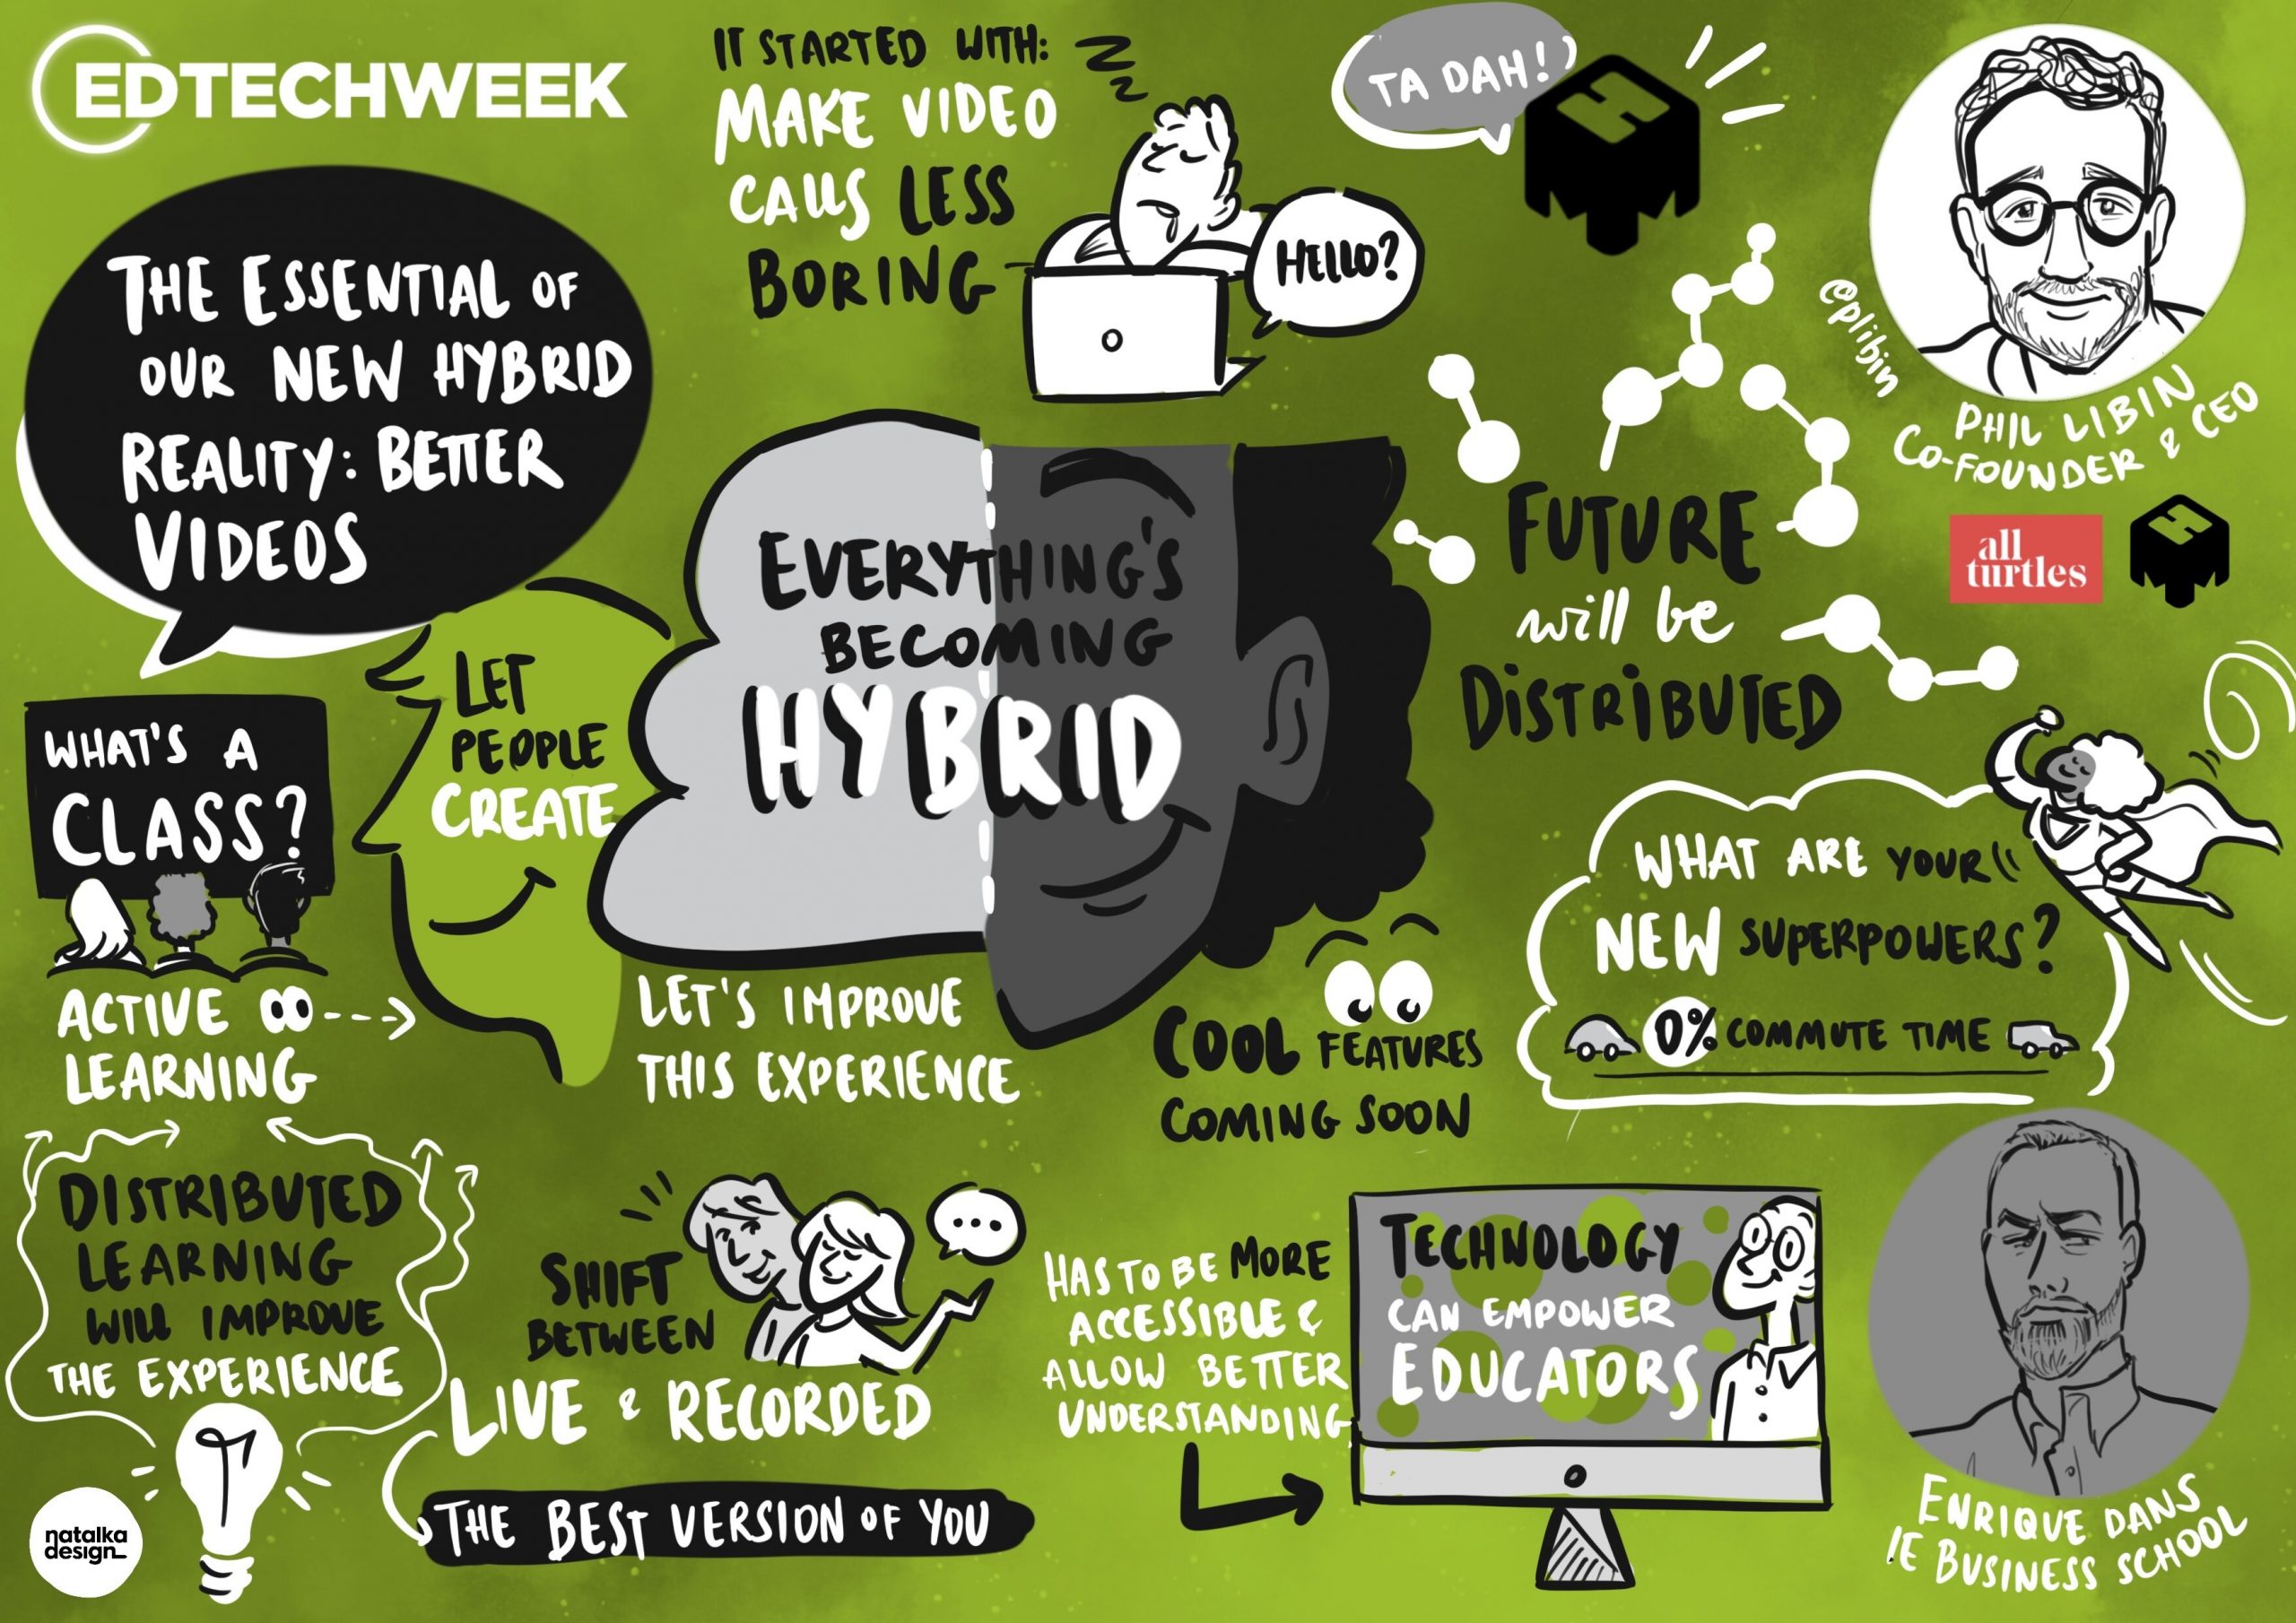 EDTECHWEEK
THE ESSENTIAL OF
OUR NEW HYBRID
REALITY: BETTER
VIDEOS
IT STARTED WITH:
MAKE VIDEO
CALLS LESS
BORING
HELLO?
TA DAH!
@plibin
PHIL LIBIN
CO-FOUNDER & CEO
all
turtles
EVERYTHING'S
BECOMING
HYBRID
FUTURE
will be
DISTRIBUTED
LET
PEOPLE
CREATE
WHAT'S A
CLASS?
ACTIVE
LEARNING
LET'S IMPROVE
THIS EXPERIENCE
COOL FEATURES
COMING SOON
WHAT ARE YOUR
NEW SUPERPOWERS?
0% COMMUTE TIME
DISTRIBUTED
LEARNING
WILL IMPROVE
THE EXPERIENCE
SHIFT
BETWEEN
LIVE & RECORDED
THE BEST VERSION OF YOU
HAS TO BE MORE
ACCESSIBLE &
ALLOW BETTER
UNDERSTANDING
TECHNOLOGY
CAN EMPOWER
EDUCATORS
ENRIQUE DANS
IE BUSINESS SCHOOL
natalka
design_